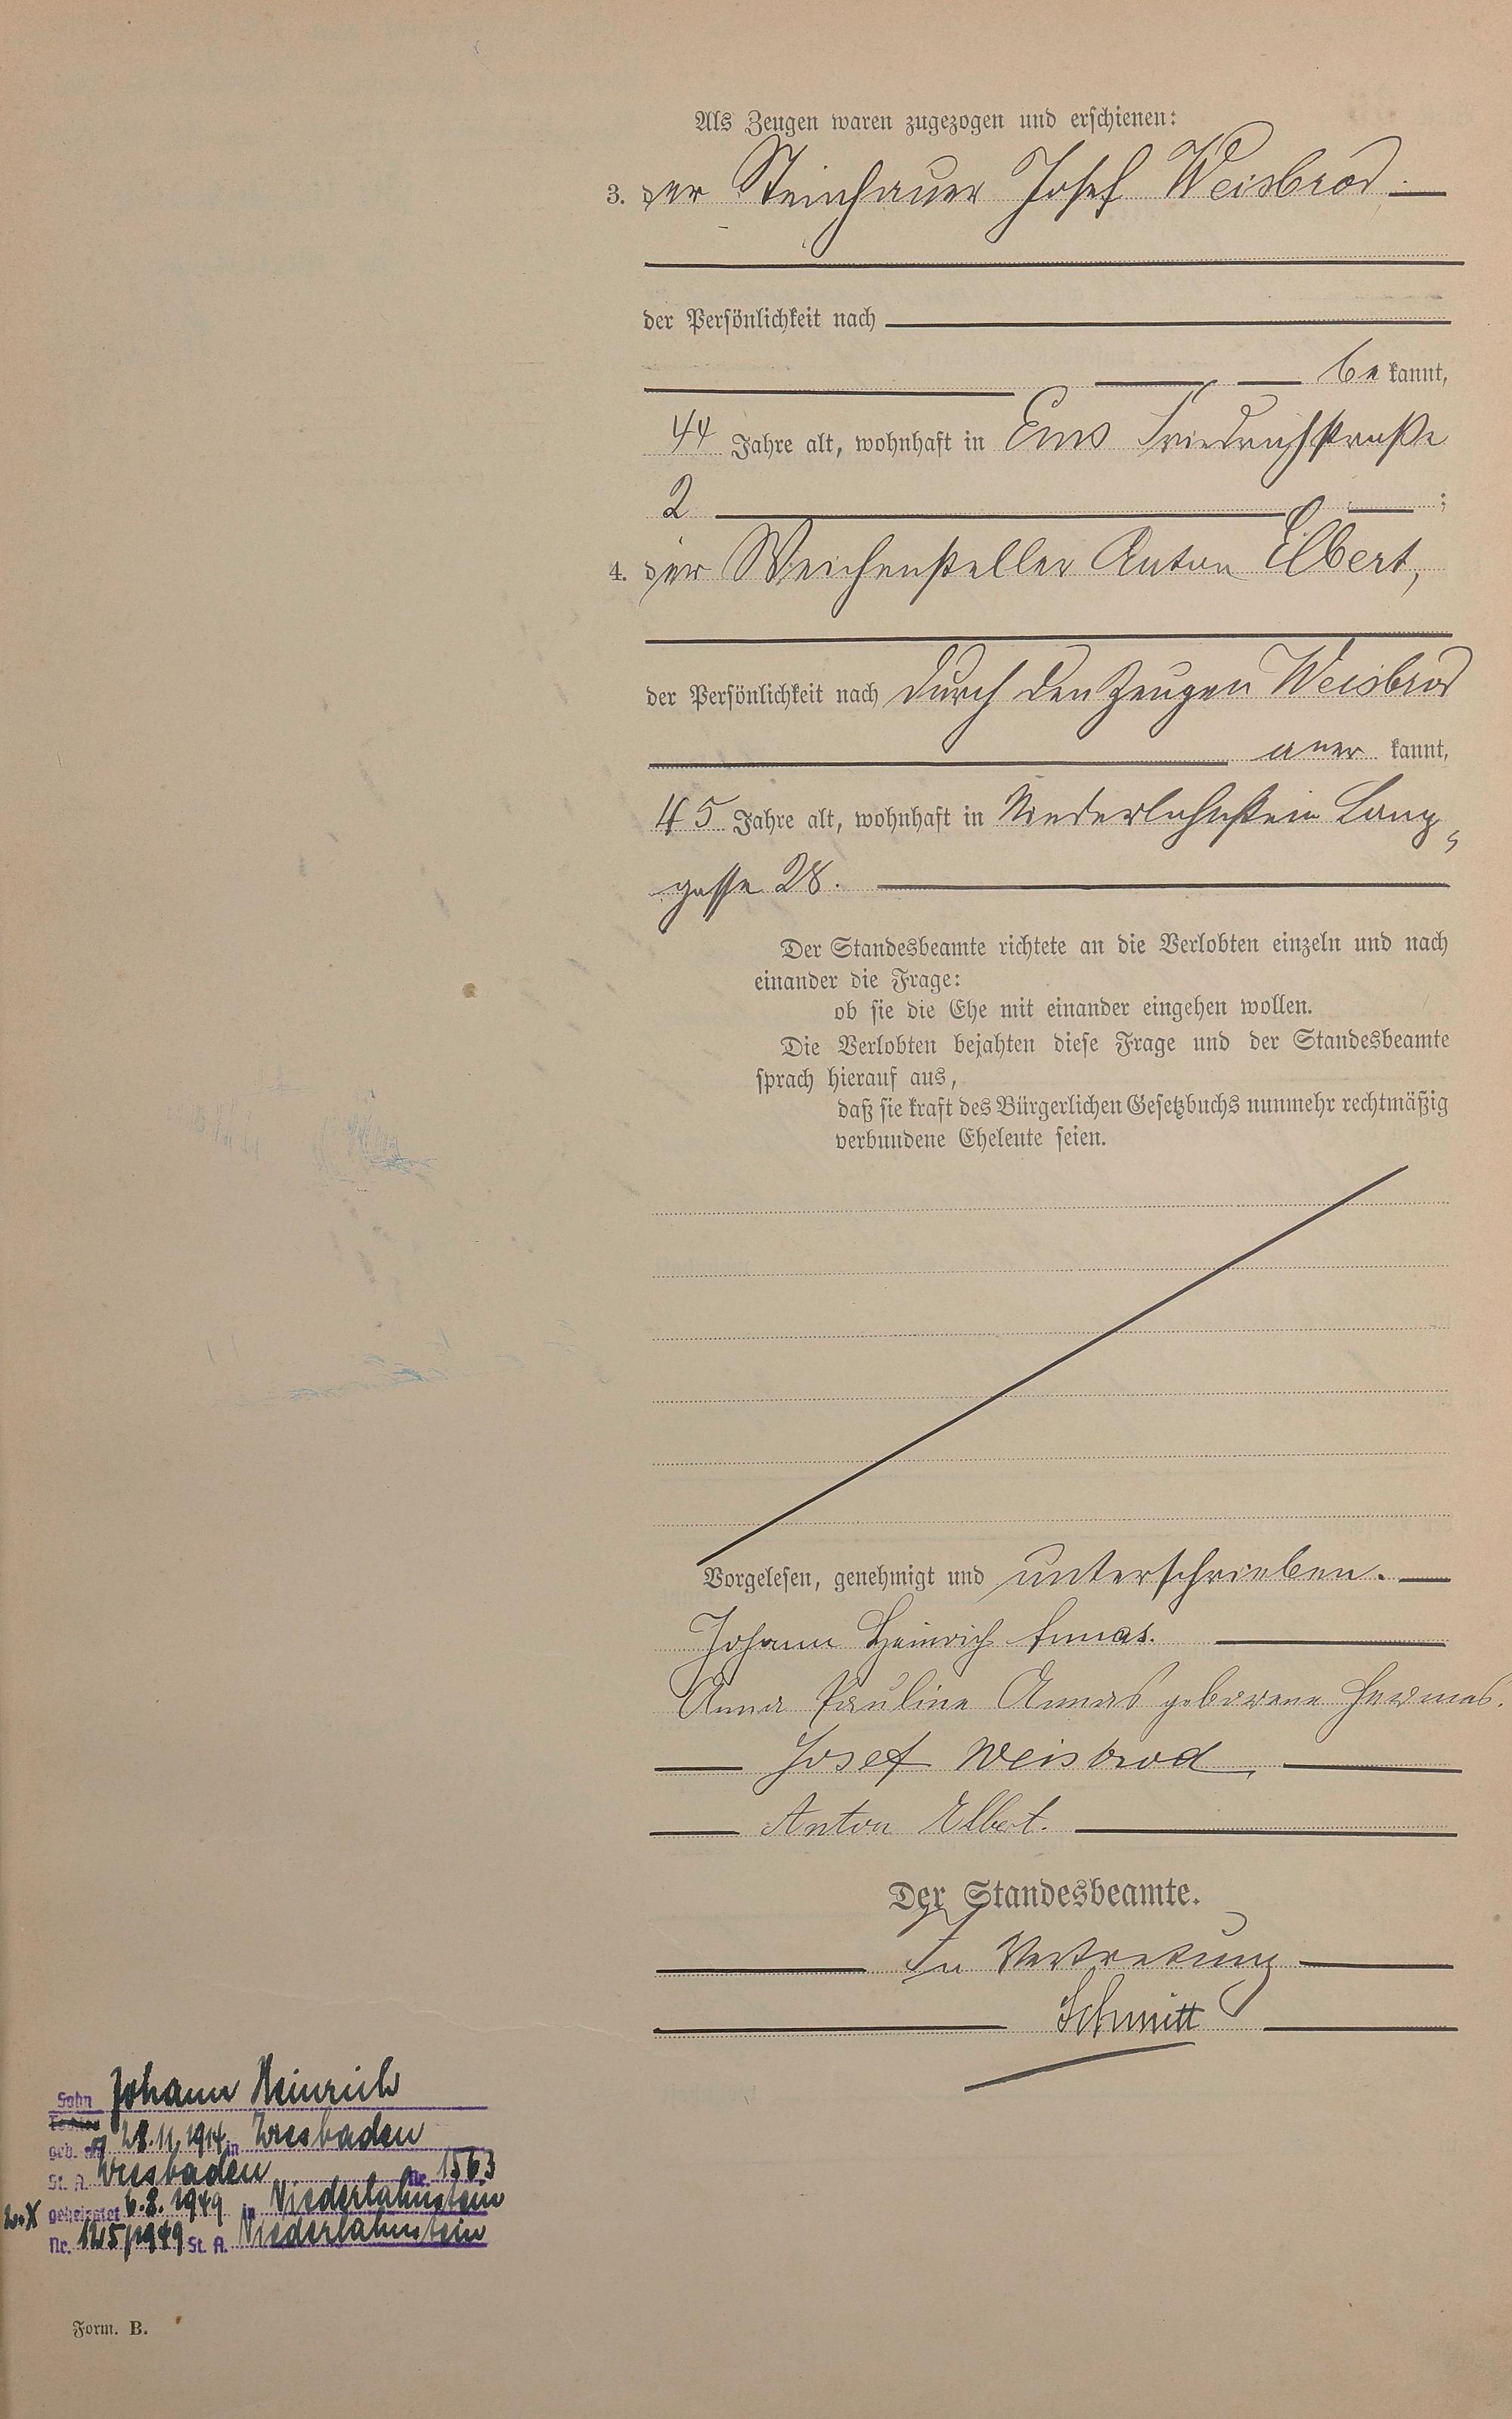 Als Zeugen waren zugezogen und erschienen:
3. der Steinhauer Josef Weisbrod.
der Persönlichkeit nach
be kannt,
44 Jahre alt, wohnhaft in Ems Friedrichstraße
2 ;
4. der Weichensteller Anton Elbert,
der Persönlichkeit nach durch den Zeugen Weisbrod
aner kannt,
45 Jahre alt, wohnhaft in Niederlahnstein Lang-
gasse 28.
Der Standesbeamte richtete an die Verlobten einzeln und nach
einander die Frage:
ob sie die Ehe mit einander eingehen wollen.
Die Verlobten bejahten diese Frage und der Standesbeamte
sprach hierauf aus,
daß sie kraft des Bürgerlichen Gesetzbuchs nunmehr rechtmäßig
verbundene Eheleute seien.
Vorgelesen, genehmigt und unterschrieben.
Johann Heinrich Annas.
Anna Pauline Annas geborene Hermes.
Josef Weisbrod
Anton Elbert.
Der Standesbeamte.
In Vertretung
Schmitt
Sohn Johann Heinrich
Tochter
geb. am 28.11.1914 in Wiesbaden
St. A. Wiesbaden Nr. 1563
geheiratet 6.8.1949 in Niederlahnstein
Nr. 125/1949 St. A. Niederlahnstein
Form. B.